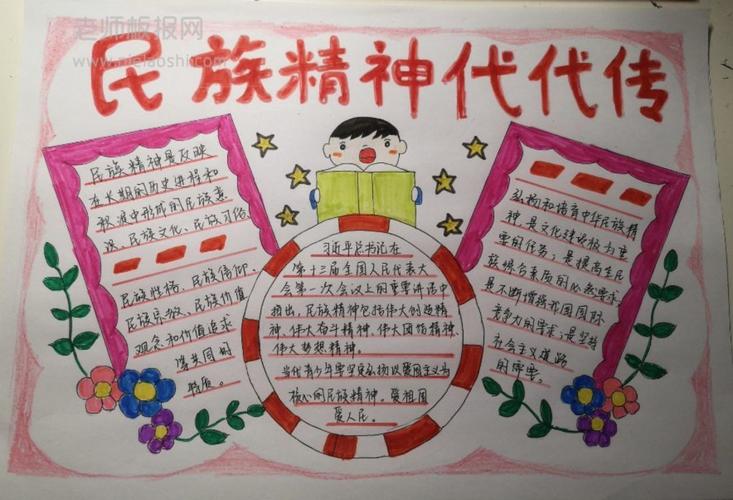 老师板报网
www.cnlaoshi.com
民族精神代代传
民族精神是反映
在长期的历史进程和
积淀中形成的民族意
识、民族文化、民族习俗、
民族性格、民族信仰、
民族宗教、民族价值
观念和价值追求
等共同的
特质。
习近平总书记在
第十三届全国人民代表大
会第一次会议上的重要讲话中
指出,民族精神包括伟大创造精
神、伟大奋斗精神、伟大团结精神、
伟大梦想精神。
当代青少年要坚定弘扬以爱国主义为
核心的民族精神。爱祖国
爱人民。
弘扬和培育中华民族精
神,是文化建设极为重
要的任务;是提高全民
族综合素质的必然要求
是不断增强我国国际
竞争力的要求;是坚持
社会主义道路
的需要。